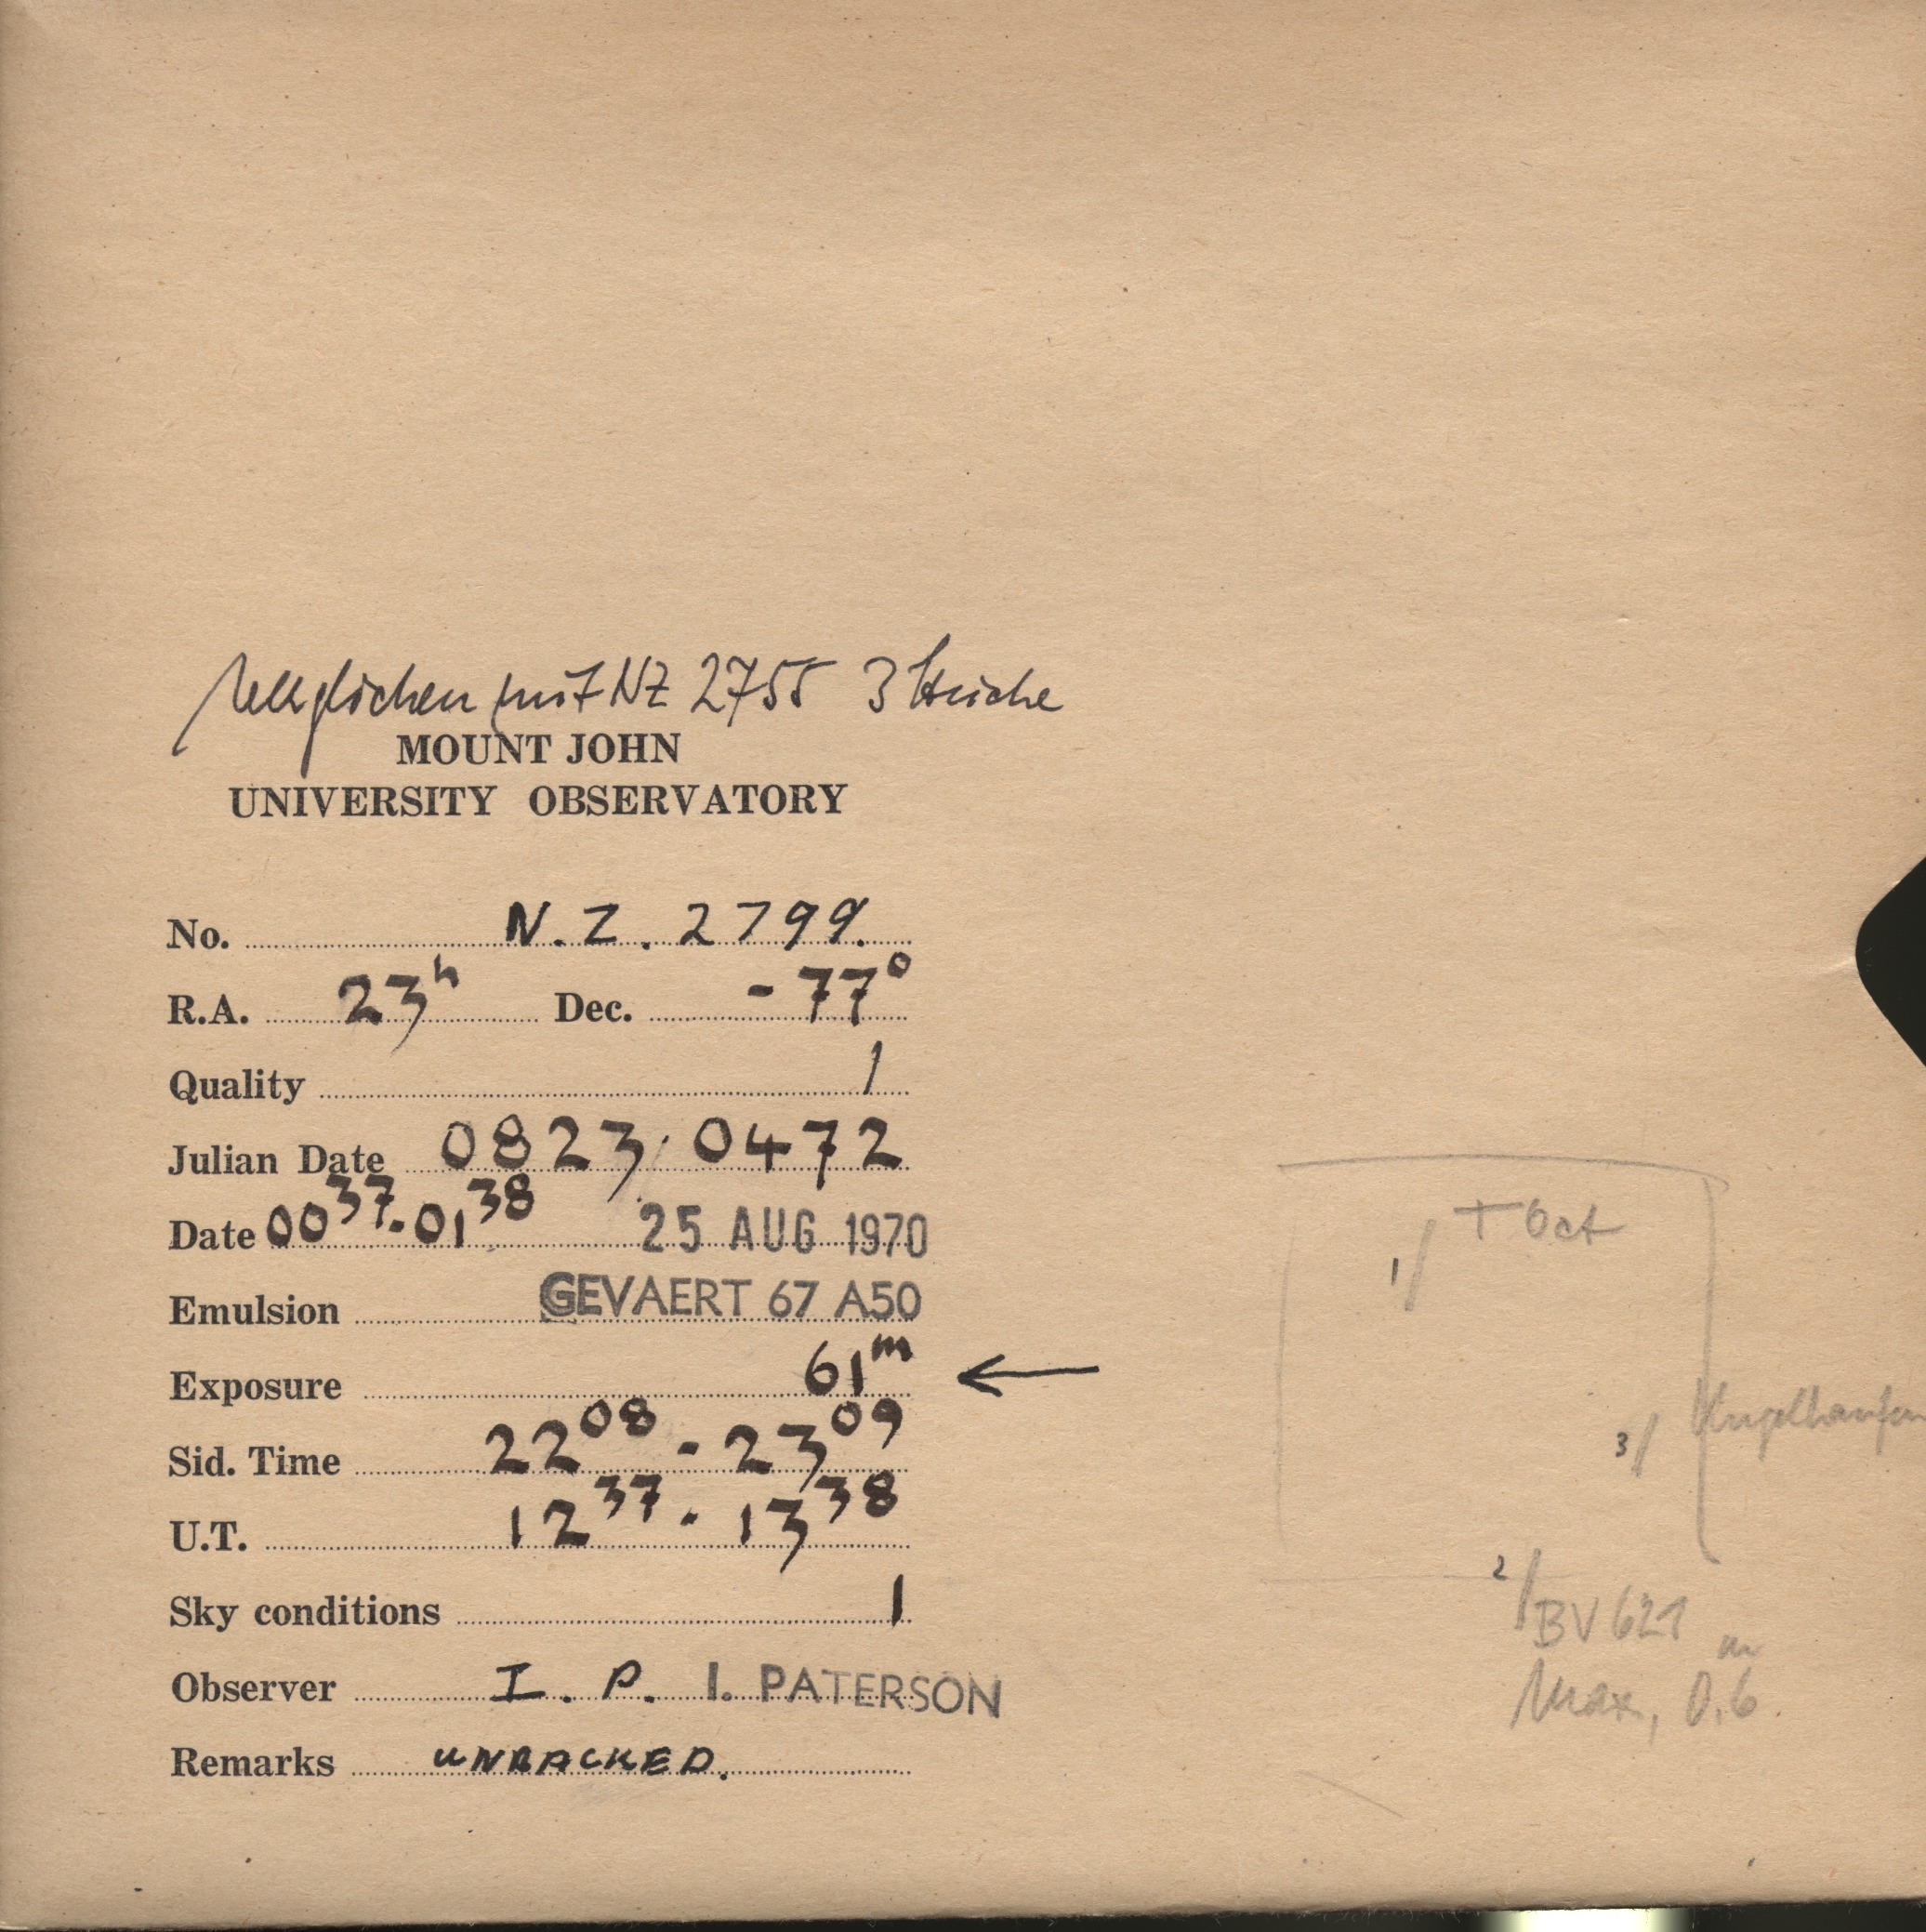 verglichen mit NZ 2755 3 Striche
MOUNT JOHN
UNIVERSITY OBSERVATORY
No. N.Z. 2799.
R.A. 23h Dec. -77°
Quality 1
Julian Date 0823.0472
Date 00 37 - 01 38 25 AUG 1970
Emulsion GEVAERT 67 A50
Exposure 61m ←
Sid. Time 22 08 - 23 09
U.T. 12 37 - 13 38
Sky conditions 1
Observer I. P. I. PATERSON
Remarks UNBACKED.
1/ T Oct
3/ Kugelhaufen
2/ BV 621
Max, 0.m6.